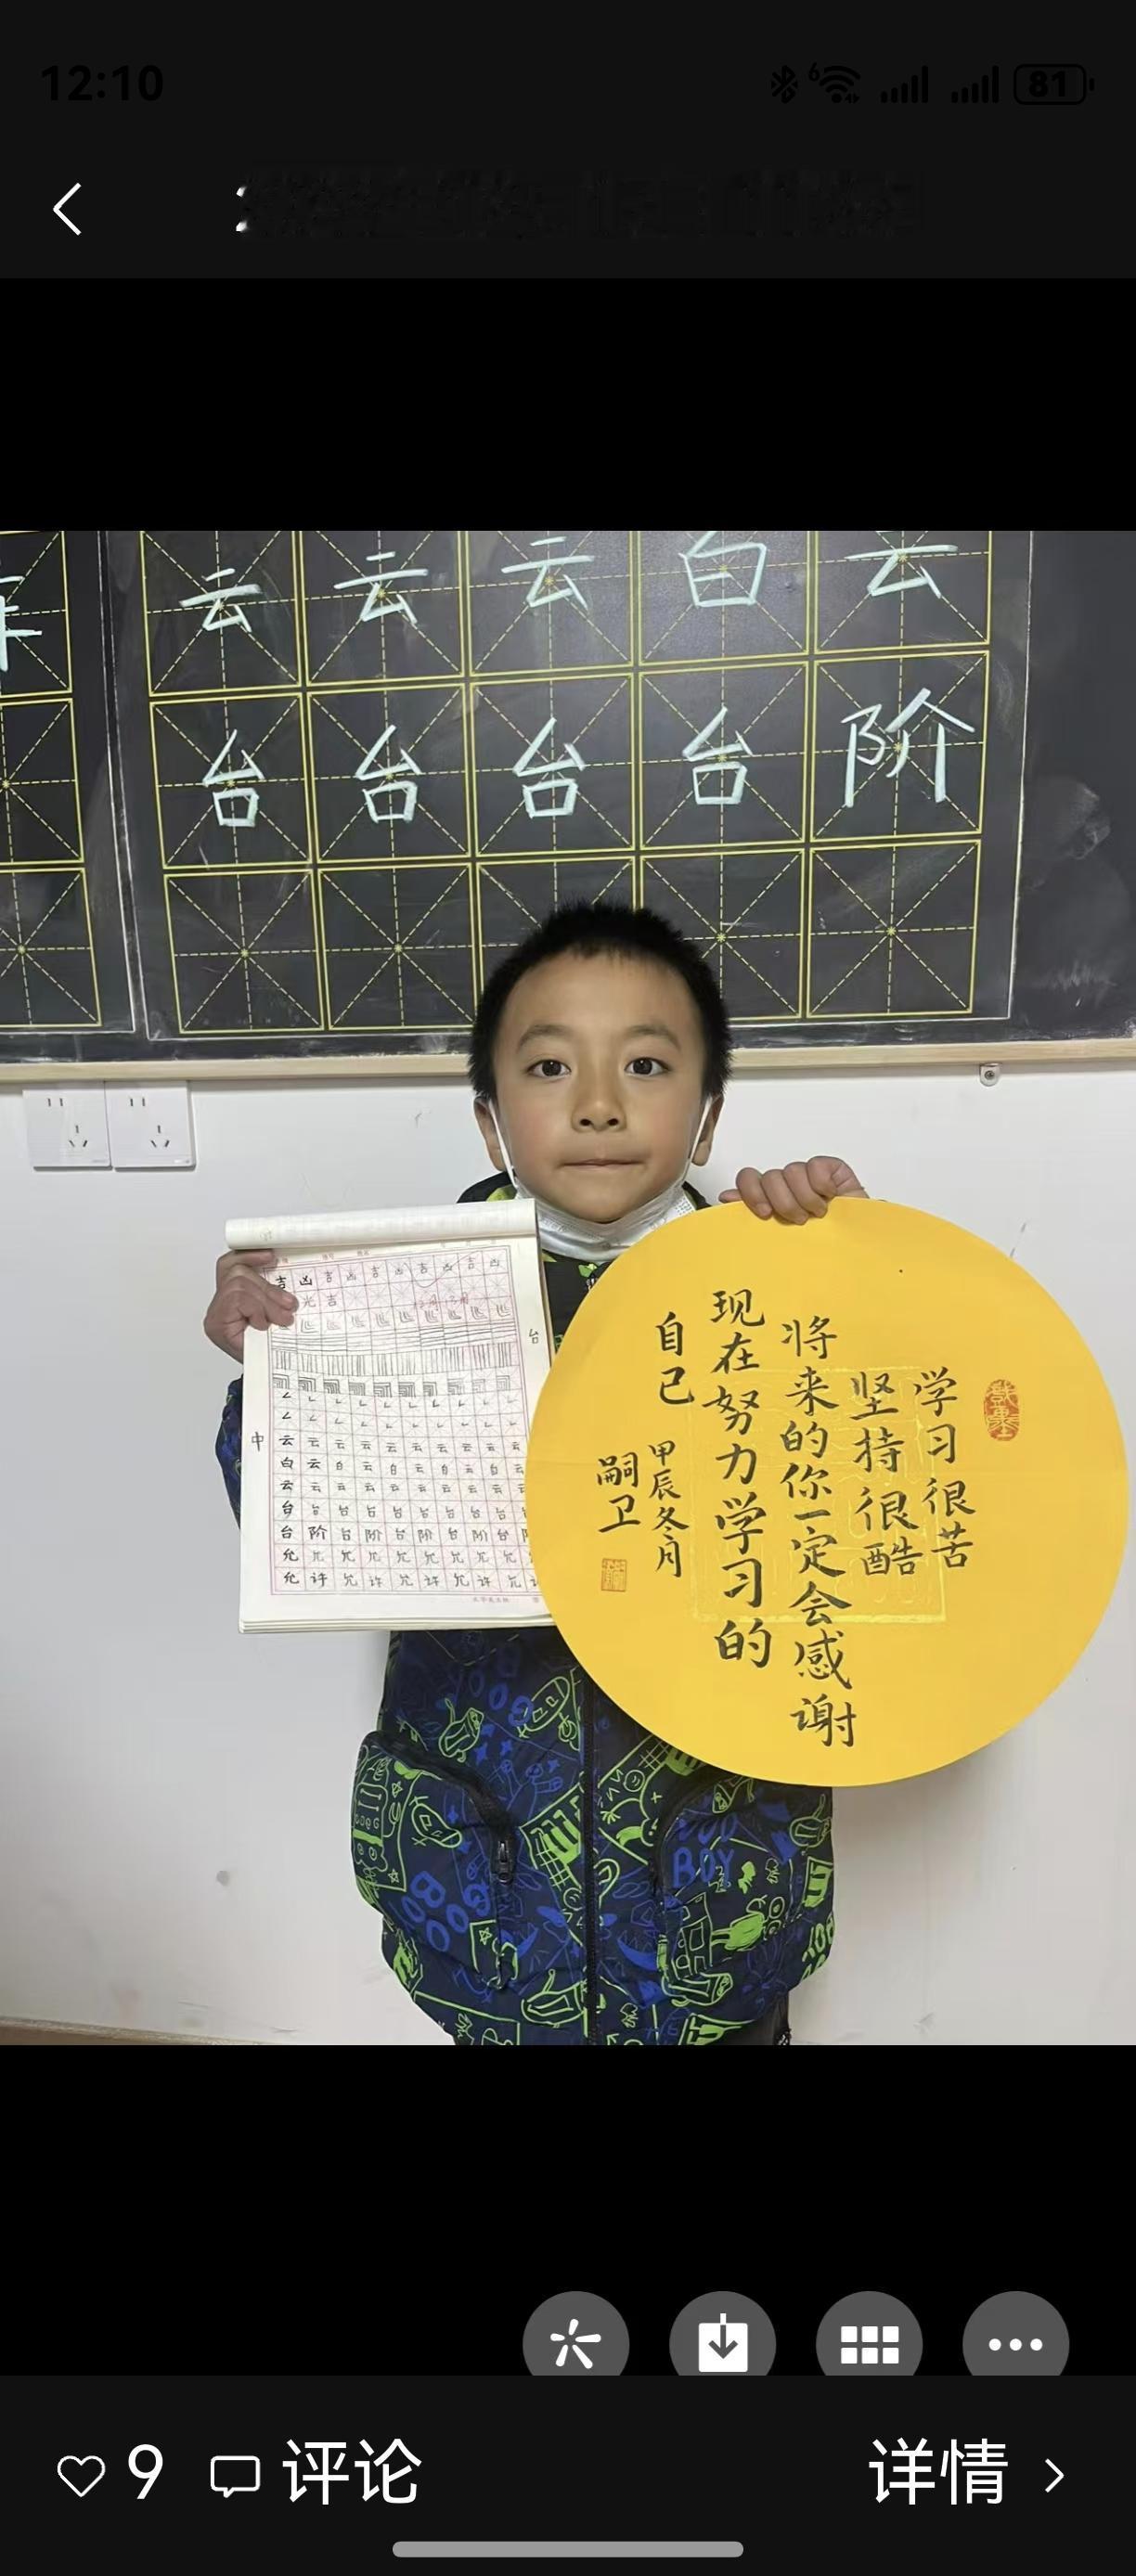 12:10
6
81
云 云 云 白 云
台 台 台 台 阶
吉 凶 吉 凶 吉 凶 吉 凶 吉 凶
光 吉
中
台
云 云 云 云 云 云 云 云 云
白 云 白 云 白 云 白 云 白 云
云 云 云 云 云 云 云 云 云
台 台 台 台 台 台 台 台 台
台 阶 台 阶 台 阶 台 阶 台
允 允 允 允 允 允 允 允 允
允 许 允 许 允 许 允 许 允
学习很苦
坚持很酷
将来的你一定会感谢
现在努力学习的
自己
甲辰冬月
嗣卫
BOY
9
评论
详情